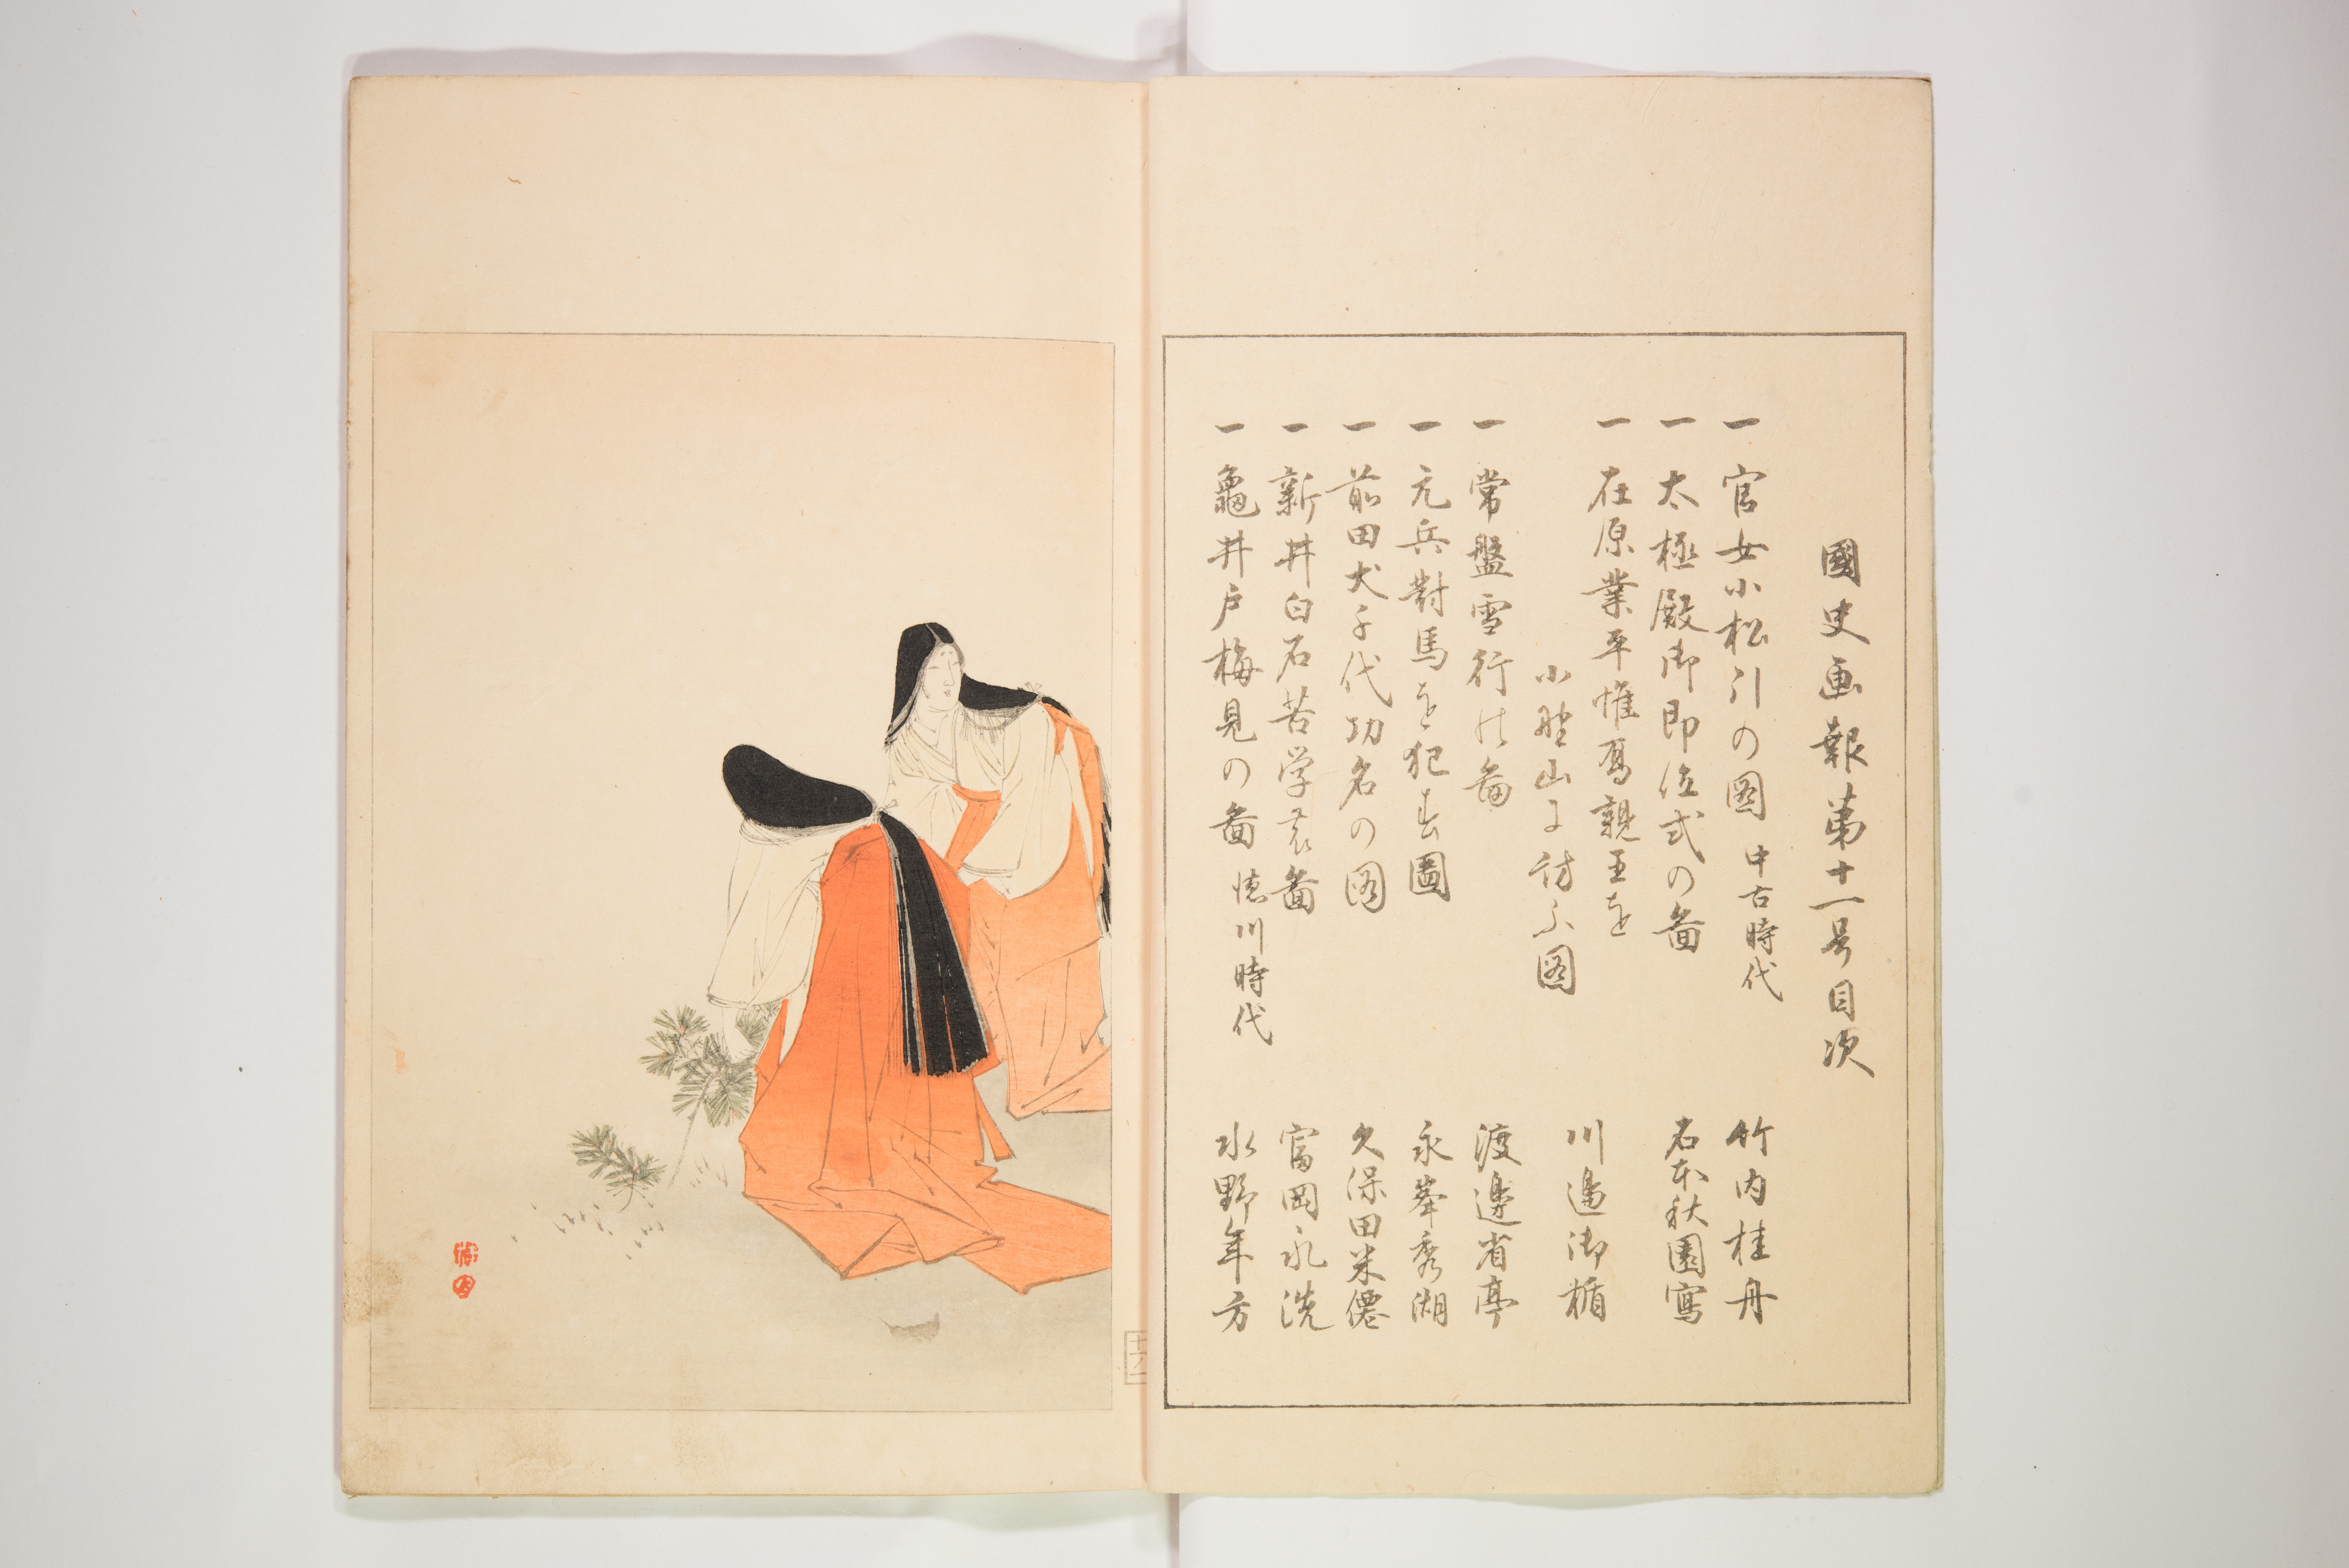 國史画報第十一号目次
一 官女小松引の図 中古時代 竹内桂舟
一 太極殿御即位式の圖 石本秋園寫
一 在原業平惟喬親王を
小野山に訪ふ図 川邉御楯
一 常盤雪行の圖 渡邊省亭
一 元兵對馬を犯す圖 永峯秀湖
一 前田犬千代功名の図 久保田米僊
一 新井白石苦学の圖 富岡永洗
一 龜井戸梅見の圖 徳川時代 水野年方